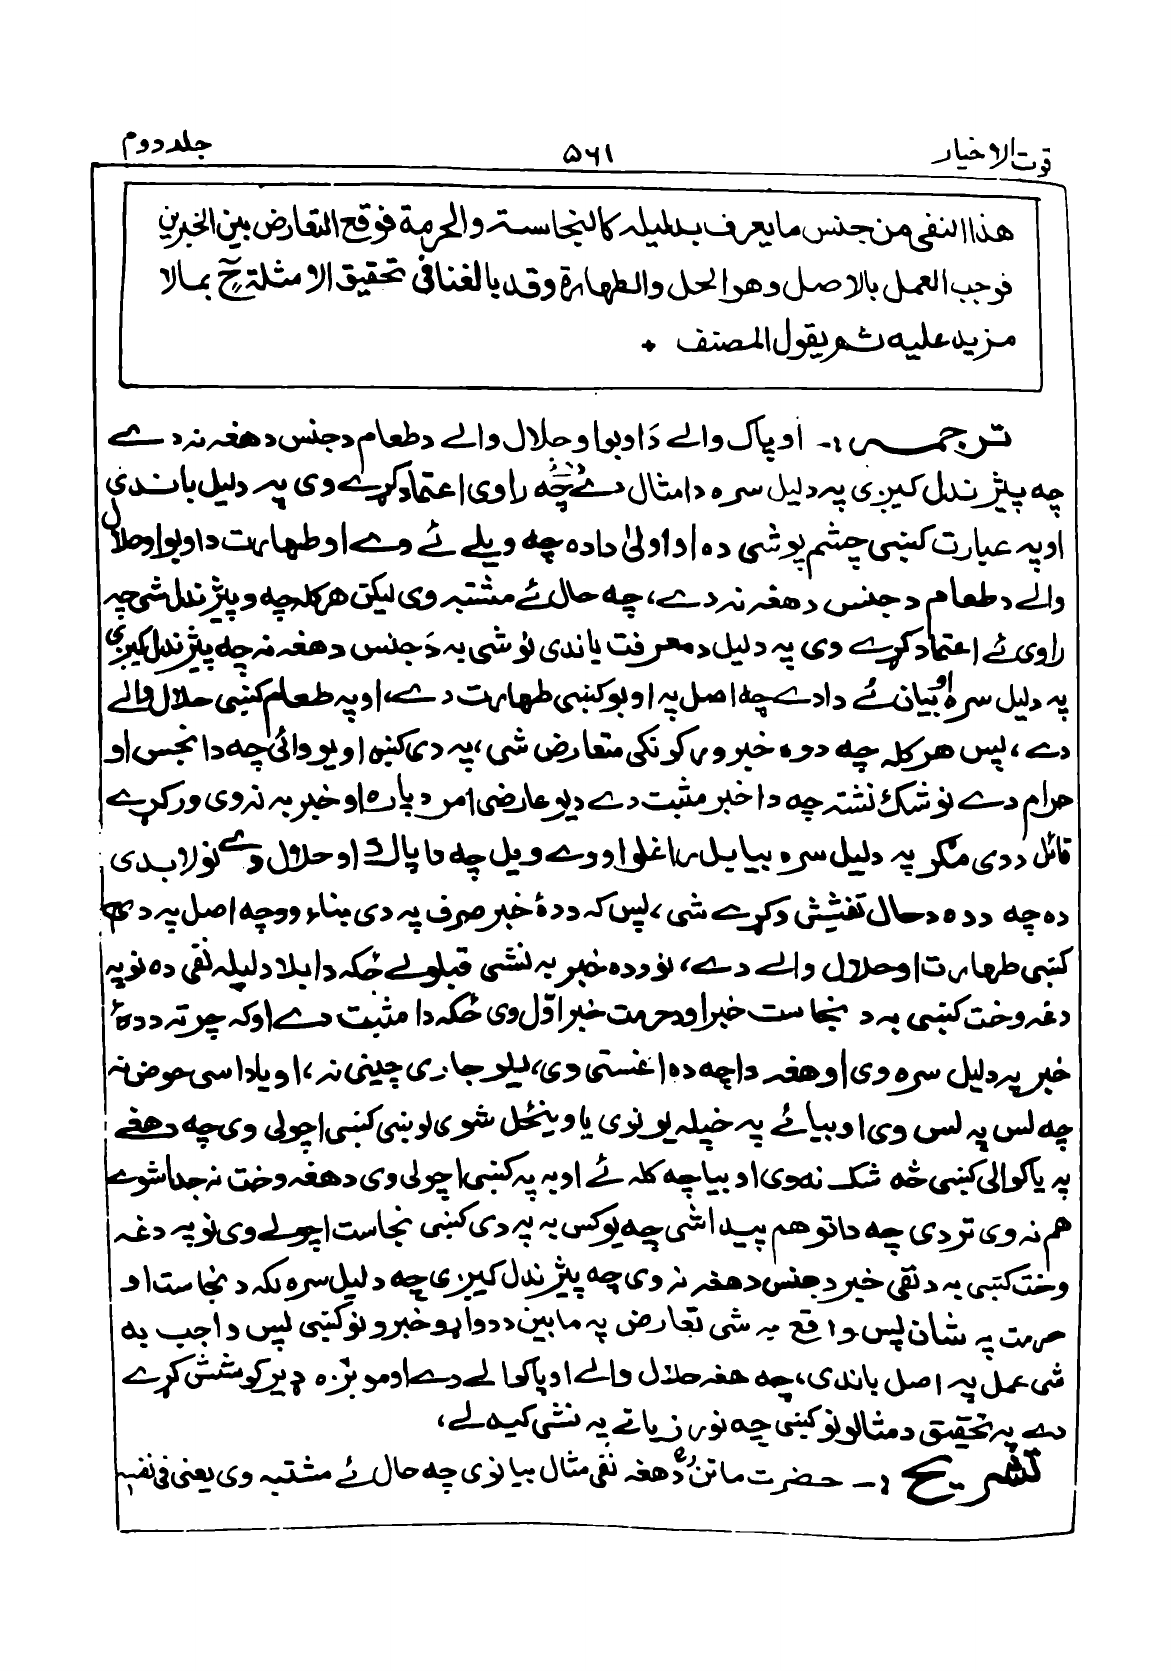 قوت الاخیار ۵۶۱ جلد دوم
هذا النفی من جنس ما یعرف بدلیله کالنجاسة والحرمة فوقع التعارض بین الخبرین
فوجب العمل بالاصل وهو الحل والطهارة وقد بالغنا فی تحقیق الامثلة ح بما لا
مزید علیه ثم یقول المصنف ٭
ترجمہ :۔ او پاک والے دَ اوبو او حلال والے د طعام د جنس د هغہ نہ دے
چہ پیژندل کیږی پہ دلیل سره دا مثال دے چہ راوی اعتماد کړے وی پہ دلیل باندی
او پہ عبارت کښی چشم پوشی ده او اولیٰ داده چہ ویلے ئے وے او طهارت د اوبو او حلال
والے د طعام د جنس د هغہ نہ دے، چہ حال ئے مشتبہ وی لیکن هرکلہ چہ وپیژندل شی چہ
راوی ئے اعتماد کړے وی پہ دلیل د معرفت باندی نو شی بہ دَ جنس د هغہ نہ چہ پیژندل کیږی
پہ دلیل سره او بیان ئے دادے چہ اصل پہ اوبو کښی طهارت دے، او پہ طعام کښی حلال والے
دے، پس هرکلہ چہ دوه خبر ورکونکی متعارض شی، پہ دی کښی او یو وائی چہ دا نجس او
حرام دے نو شک نشتہ چہ دا خبر مثبت دے د یو عارضی امر د پاره او خبر بہ نہ وی ورکړے
قائل ددی مګر پہ دلیل سره بیا بل راغلو او وے ویل چہ دا پاک او حلال دے نو لا بدی
ده چہ دده د حال تفتیش وکړے شی، پس کہ ددهٔ خبر صرف پہ دی بناء وو چہ اصل پہ دی
کښی طهارت او حلال والے دے، نو دده خبر بہ نشی قبلولے ځکہ دا بلا دلیلہ نفی ده نو پہ
دغہ وخت کښی بہ د نجاست خبر او د حرمت خبر اوّل وی ځکہ دا مثبت دے او کہ چرتہ ددهٔ
خبر پہ دلیل سره وی او هغہ دا چہ ده اغستی وی، د یو جاری چینی نہ، او یا داسی حوض نہ
چہ لس پہ لس وی او بیا ئے پہ خپلہ پو نوی یا وینځل شوی لوښی کښی اچولی وی چہ د هغے
پہ پاکوالی کښی څہ شک نہ وی او بیا چہ کلہ ئے اوبہ پہ کښی اچولی وی د هغہ وخت نہ جدا شوے
هم نہ وی تردی چہ دا توهم پیدا شی چہ یو کس بہ پہ دی کښی نجاست اچولے وی نو پہ دغہ
وخت کښی بہ د نفی خبر د جنس د هغہ نہ وی چہ پیژندل کیږی چہ دلیل سره لکہ د نجاست او
حرمت پہ شان پس واقع بہ شی تعارض پہ مابین د دواړو خبرونو کښی پس واجب بہ
شی عمل پہ اصل باندی، چہ هغہ حلال والے او پاکوالے دے او مونږه ډیر کوشش کړے
دے پہ تحقیق د مثالونو کښی چہ نور زیاتے پہ نشی کیدلے،
تشریح :۔ حضرت ماتنؒ دَ هغہ نفی مثال بیانوی چہ حال ئے مشتبہ وی یعنی فی نفسہ